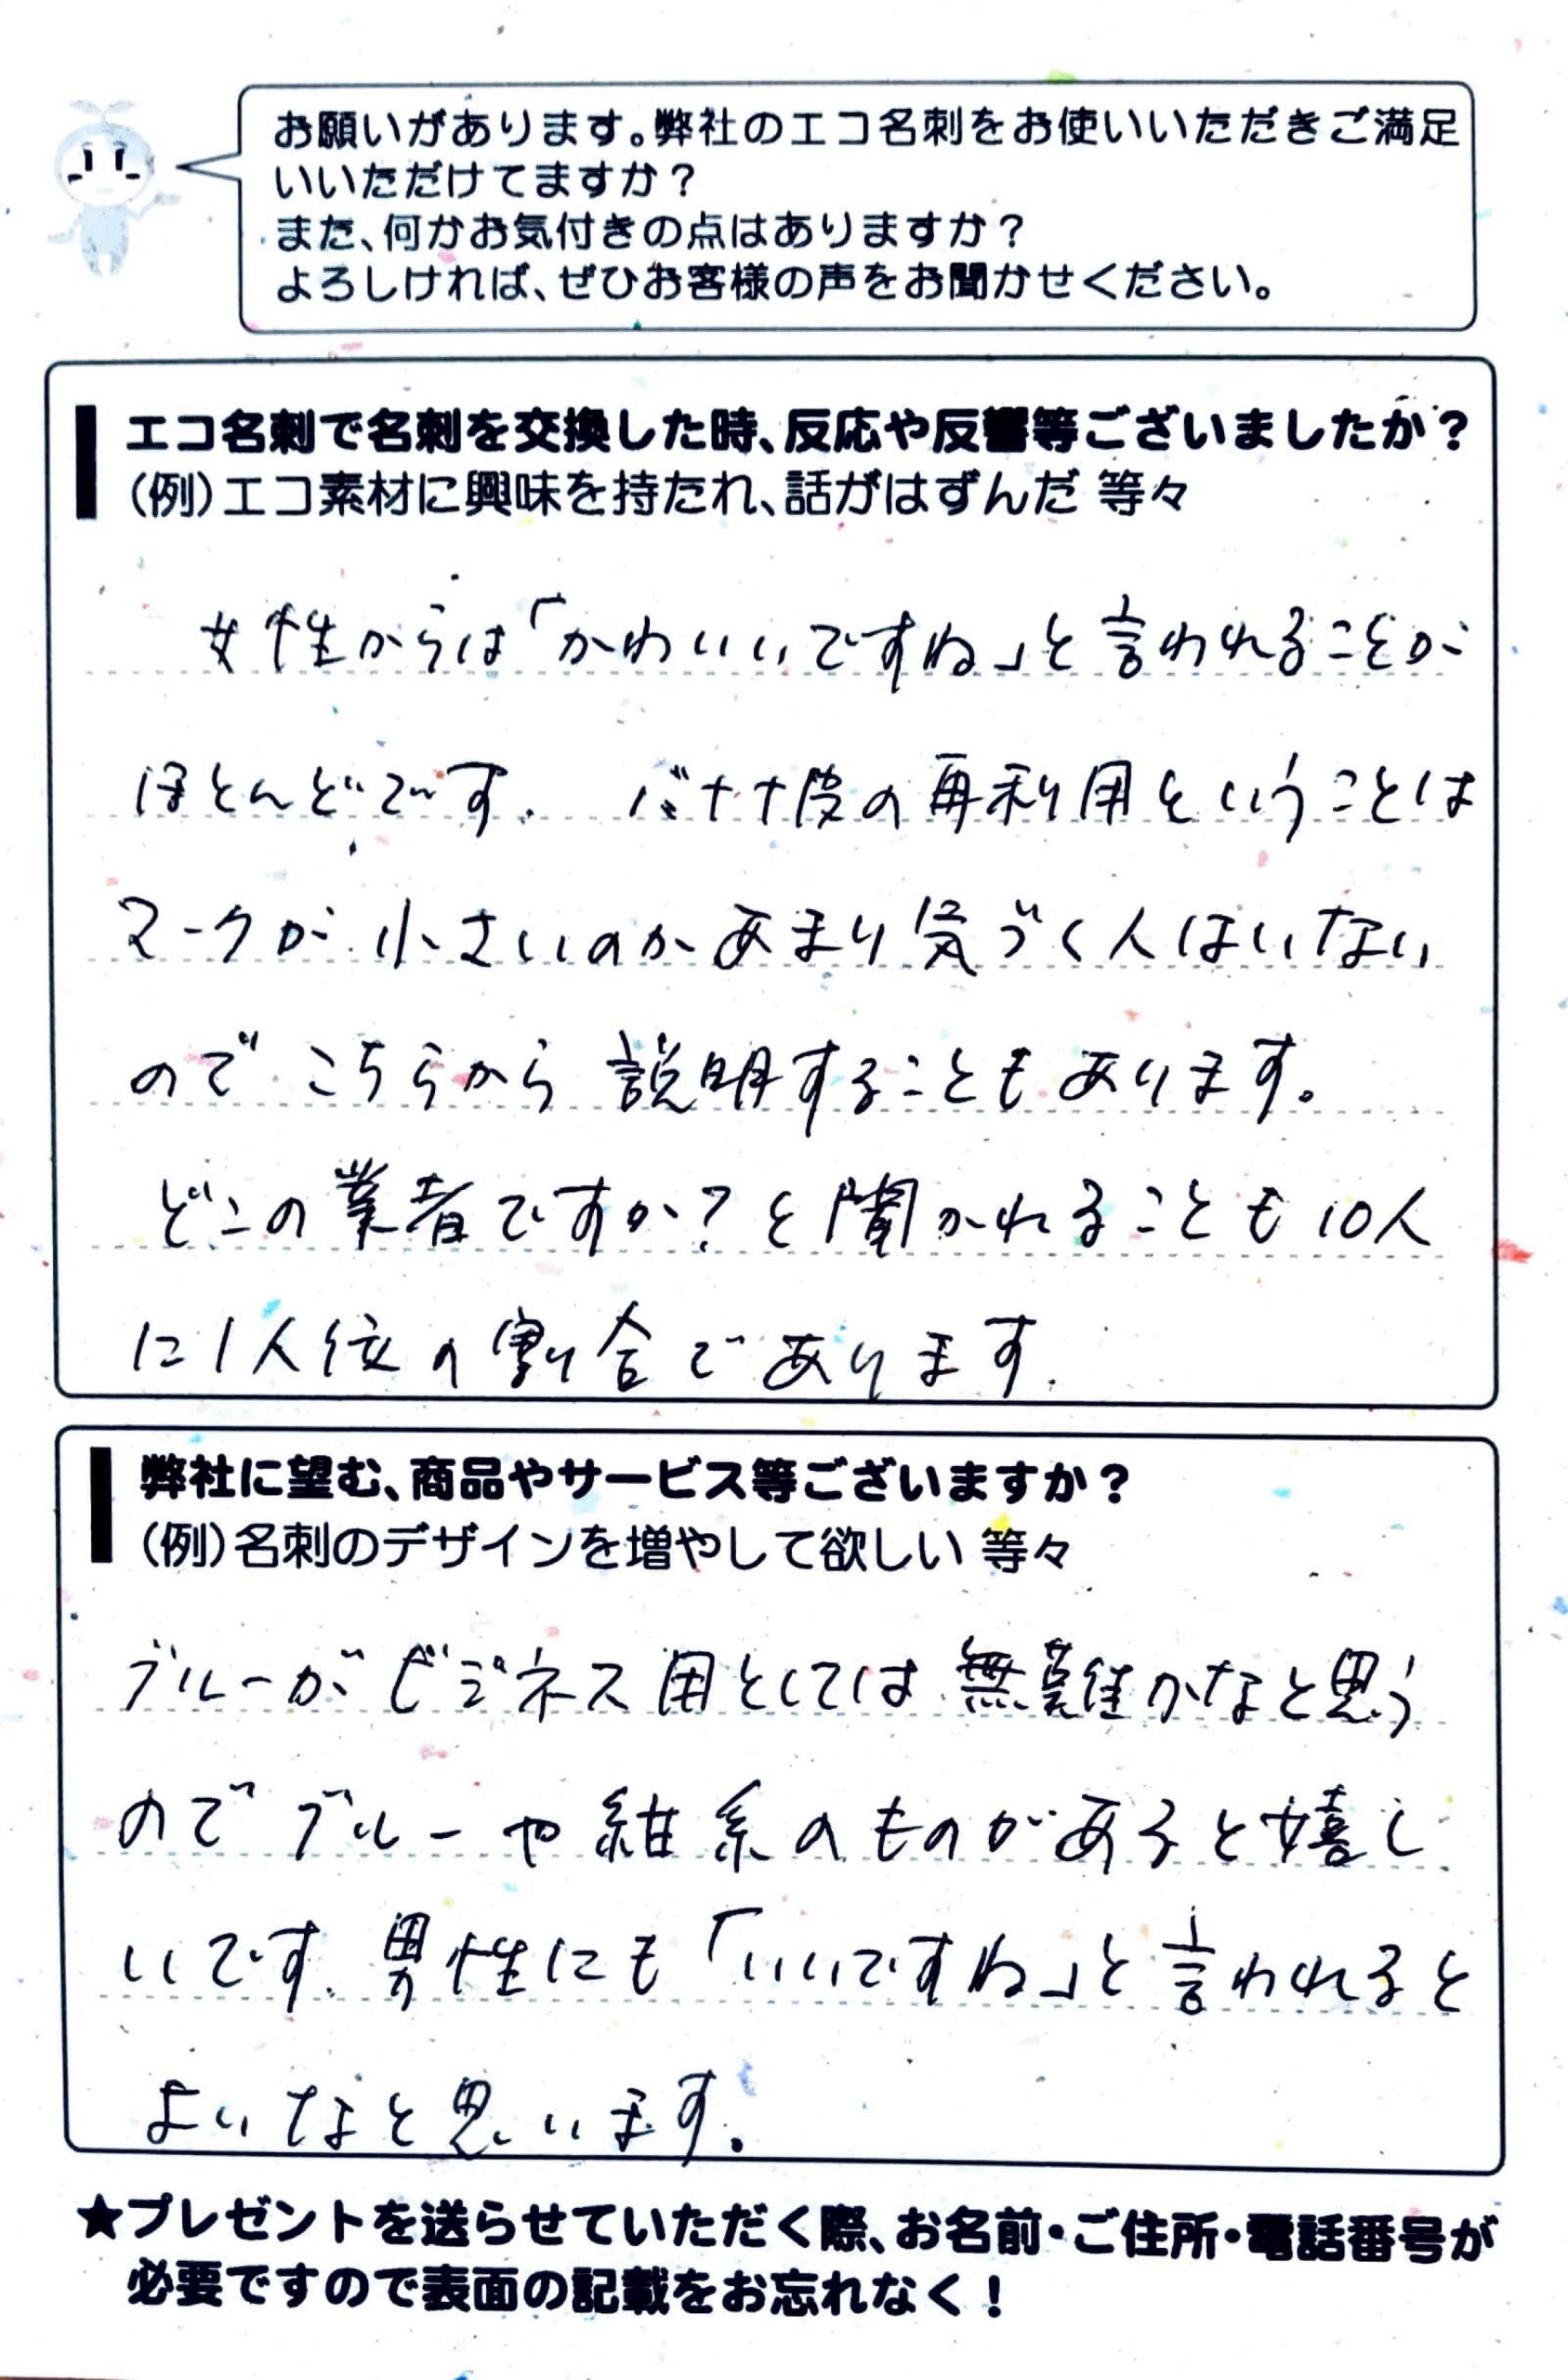 お願いがあります。弊社のエコ名刺をお使いいただきご満足
いいただけてますか？
また、何かお気付きの点はありますか？
よろしければ、ぜひお客様の声をお聞かせください。
エコ名刺で名刺を交換した時、反応や反響等ございましたか？
（例）エコ素材に興味を持たれ、話がはずんだ 等々
女性からは「かわいいですね」と言われることが
ほとんどです. バナナ皮の再利用ということは
マークが小さいのかあまり気づく人はいない
のでこちらから説明することもあります。
どこの業者ですか？と聞かれることも10人
に1人位の割合であります.
弊社に望む、商品やサービス等ございますか？
（例）名刺のデザインを増やして欲しい 等々
ブルーがビジネス用としては無難かなと思う
のでブルーや紺系のものがあると嬉し
いです. 男性にも「いいですね」と言われると
よいなと思います.
★プレゼントを送らせていただく際、お名前・ご住所・電話番号が
必要ですので表面の記載をお忘れなく！